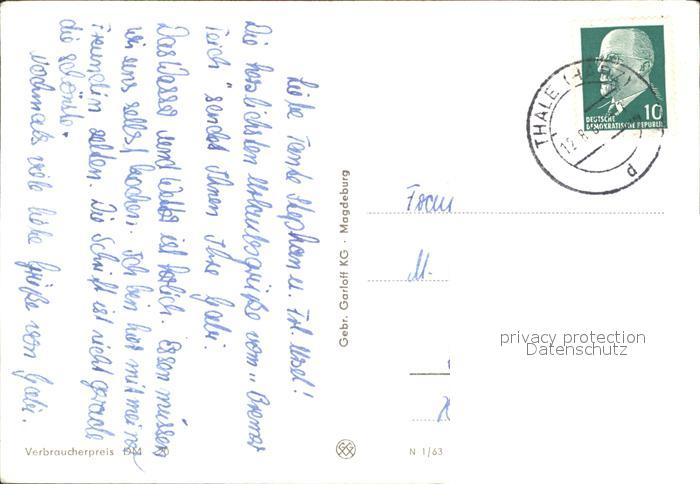 Liebe Familie Stephan u. Frl. Ursel!
Die herzlichsten Urlaubsgrüße vom „Bremer
Teich" sendet Ihnen Ihre Gabi.
Das Wasser und Wetter ist herlich. Essen müssen
wir uns selbst kochen. Ich bin hier mit meiner
Freundin zelten. Die Schrift ist nicht gerade
die schönste.
Nochmals viele liebe Grüße von Gabi.
Verbraucherpreis DM
Gebr. Garloff KG · Magdeburg
N 1/63
DEUTSCHE
DEMOKRATISCHE REPUBLIK
10
THALE (HARZ)
d
M.
privacy protection
Datenschutz